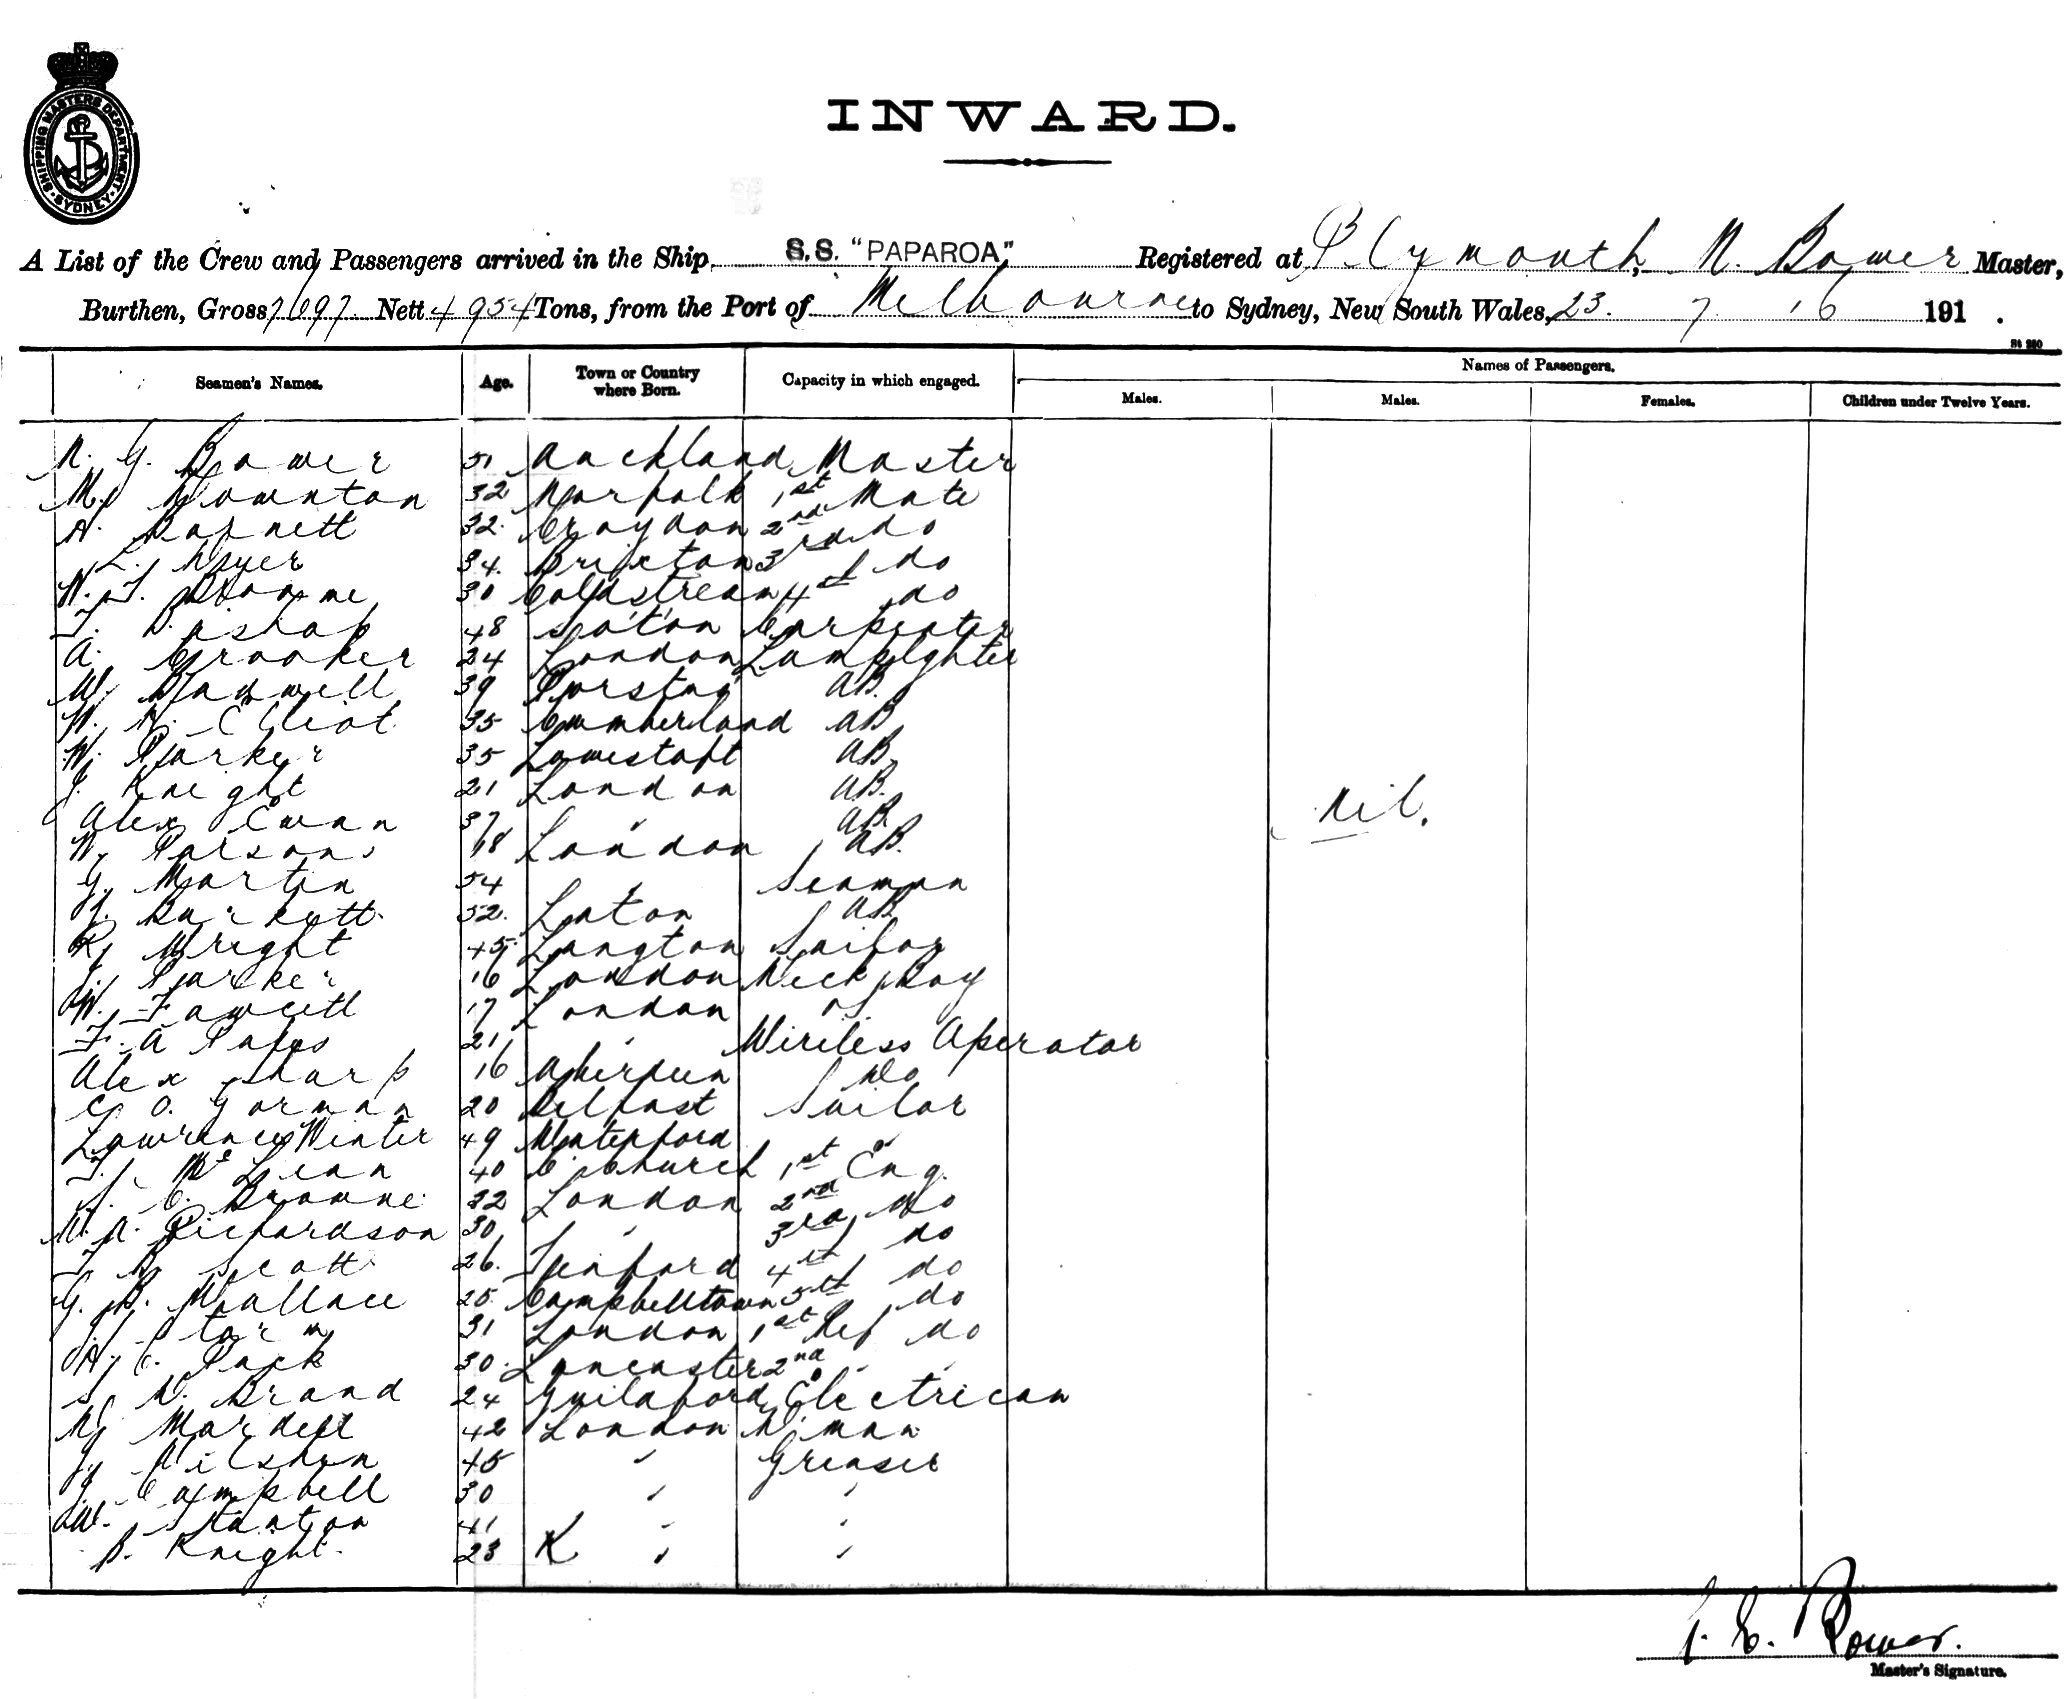 SHIPPING MASTERS DEPARTMENT
SYDNEY
INWARD.
A List of the Crew and Passengers arrived in the Ship S.S. "PAPAROA" Registered at Plymouth, N. Bower Master,
Burthen, Gross 7697 Nett 4954 Tons, from the Port of Melbourne to Sydney, New South Wales, 23. 7 16 191 .
St 280
Names of Passengers.
Seamen's Names. Age. Town or Country where Born. Capacity in which engaged. Males. Males. Females. Children under Twelve Years.
N. G. Bower 51 Auckland Master
M. Downton 32 Norfolk 1st Mate
A. Barnett 32. Croydon 2nd do
L. Dyer 34. Brixton 3rd do
W. J. Bloome 30 Coldstream 4st do
T. Bishop 48 Carpenter
A. Crooker 24 London Lamplighter
W. Bladwell 39 AB.
W. H. Elliot 35 Cumberland AB
W. Parker 35 Lowestoft AB
J. Knight 21 London AB.
Nil.
Alex Ewan 37 " AB
W. Parsons 18 London AB.
G. Martin 54 " Seaman
H. Burkett. 52. Luton AB
R. Wright 45. Langton Sailor
J. Parker 16 London Deck Boy
W. Fawcett 17 London
F. A 21 " Wireless Operator
Alex Sharp 16 Aberdeen Do
C. O. Gorman 20 Belfast Sailor
Lawrence Winter 49 Waterford "
T. McLean 40 C. Church 1st Eng.
J. C. Browne. 32 London 2nd Do
W. A. Richardson 30 " 3rd do
T. B. Scott. 26. 4th do
G. B. Wallace 25. Campbelltown 5th do
H. Storm 31 London 1st Ref do
A. C. Pack 30. Lancaster 2nd " "
S. D. Brand 24 Guildford Electrican
N. Mardell 42 London D. man
J. 45 " Greaser
J. Campbell 30 " "
W. Stanton 41 " "
B. Knight. 23 K " "
Bower.
Master's Signature.